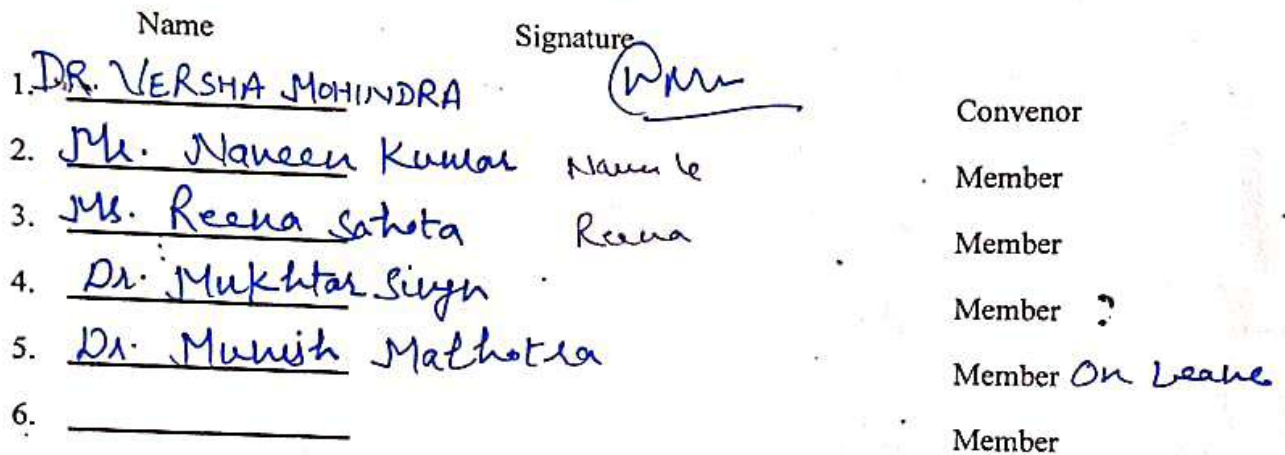 Name Signature
1. DR. VERSHA MOHINDRA Convenor
2. Mr. Naveen Kumar Member
3. Ms. Reena Sahota Reena Member
4. Dr. Mukhtar Singh Member ?
5. Dr. Munish Malhotra Member On Leave
6. Member